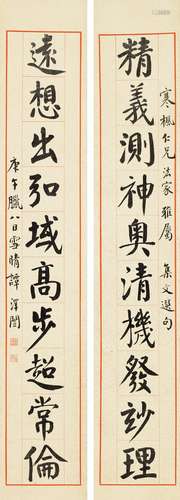 寒楓仁兄法家雅屬 集文選句
精義測神奧清機發妙理
遠想出弘域高步超常倫
庚午臘八日雪晴譚澤闓